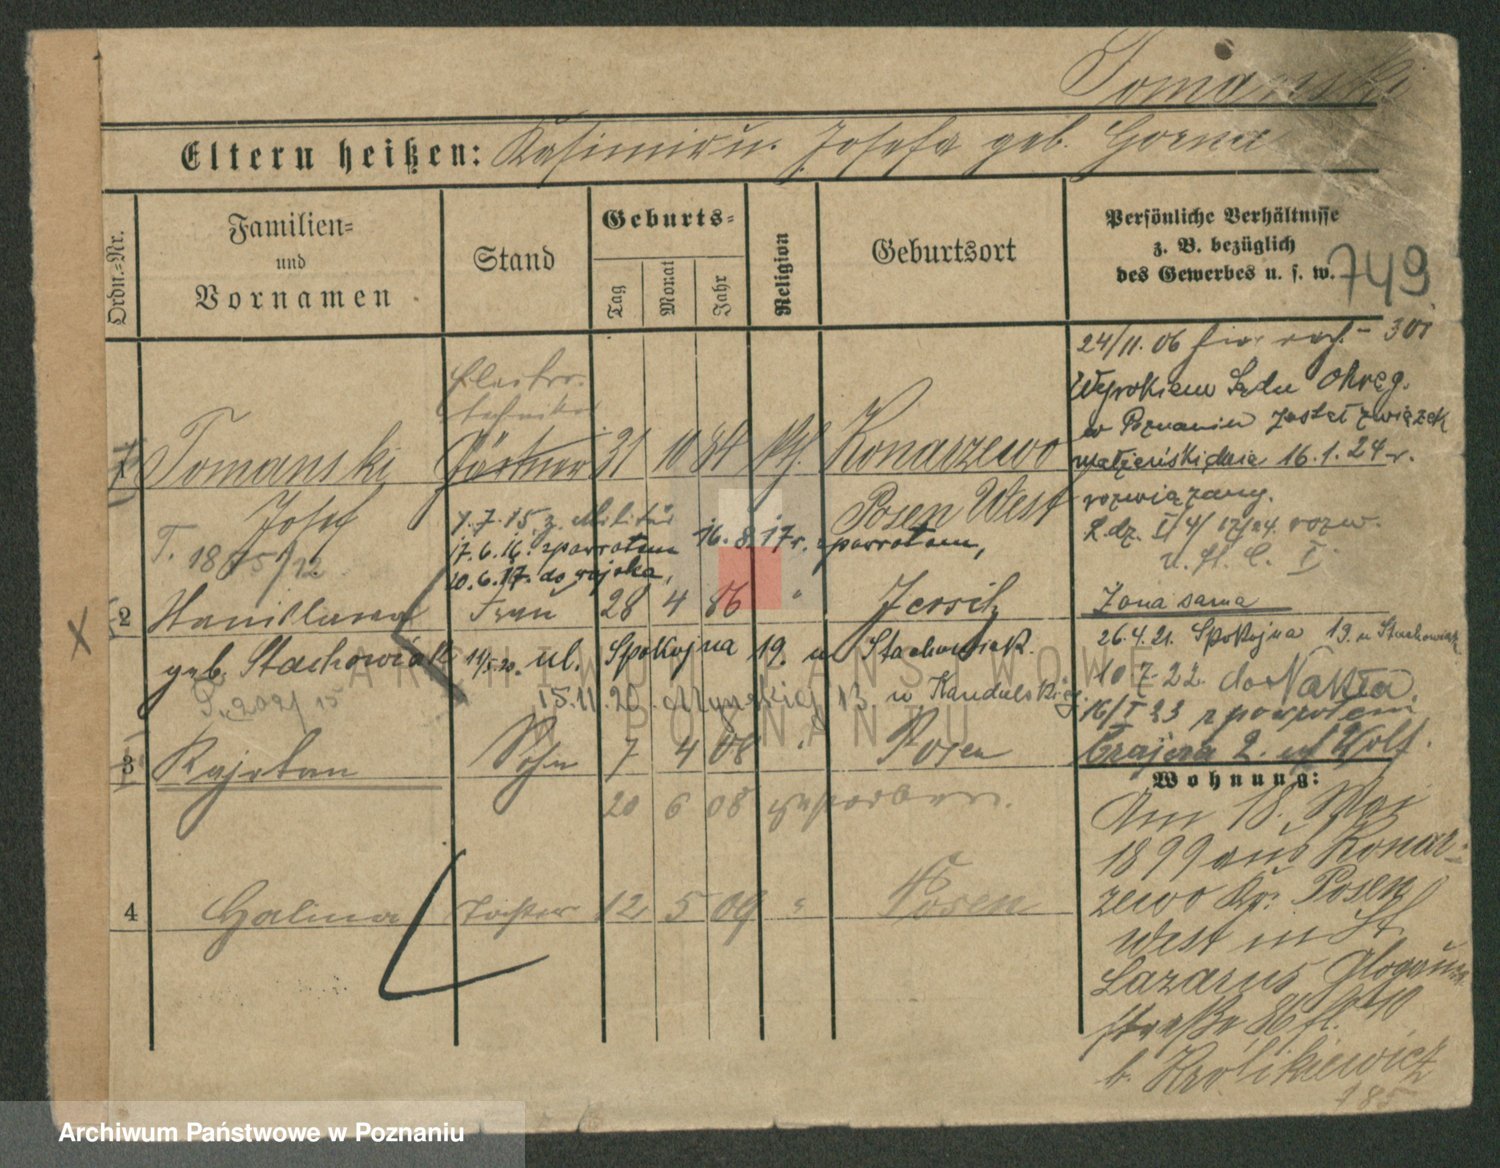 Tomanski
Eltern heißen: Kasimir u. Josefa geb. Gorna
Ordn.-Nr.
Familien-
und
Vornamen
Stand
Geburts-
Tag
Monat
Jahr
Religion
Geburtsort
Persönliche Verhältnisse
z. B. bezüglich
des Gewerbes u. s. w.
749
24/11. 06 - 301
Electro-
techniker
1 Tomanski Gärtner 31 10 84 kth. Konarzewo
Josef
Posen West
T. 18 /12
1.7.15 z. Militär
17.6.16. zpowrotem 16.8.17 r. zpowrotem,
20.6.17. do wojska,
Wyrokiem Sądu Okręg.
w Poznaniu został związek
małżeński dnia 16.1.24 r.
rozwiązany.
L. dz. I/4/ 17/24. rozw.
2 Stanislawa Frau 28 4 86 " Jersitz
geb. Stachowiak 14/5 20. ul. Spokojna 19. u Stachowiak.
202/15
15.11.20. 13. u Kandulskiej
Żona sama
26.4.21. Spokojna 19. u Stachowiak
10.7.22. do Nakła.
16/I 23 z powrotem
2. u Wolf.
3 Kajetan Sohn 7 4 08 " Posen
20 6 08 gestorben.
4 Halina Tochter 12 5 09 " Posen
Wohnung:
Am 18. Mai
1899 aus Konar-
zewo Kr. Posen
West in St.
Lazarus Glogauer-
straße 86
b. Krolikiewicz
785
ARCHIWUM PAŃSTWOWE
W POZNANIU
Archiwum Państwowe w Poznaniu